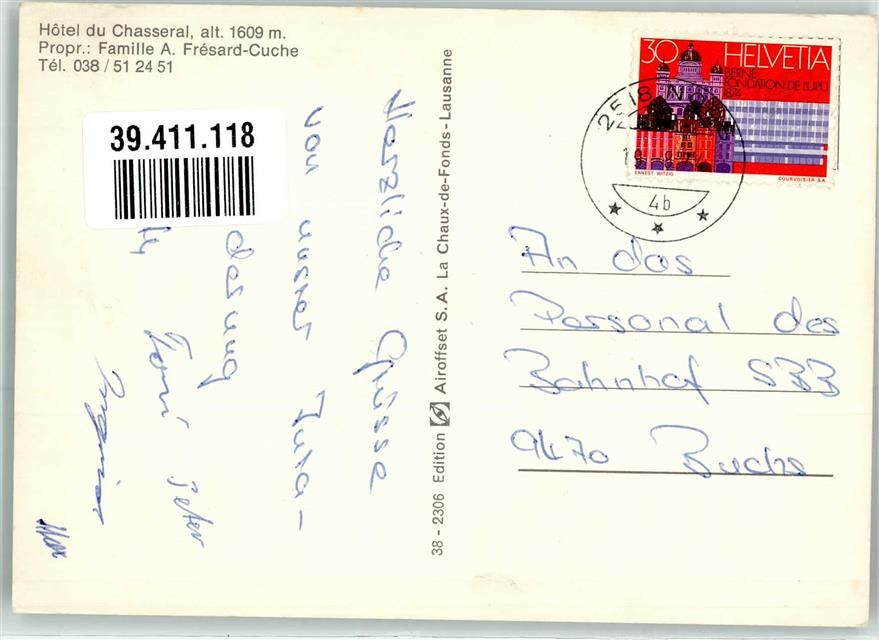 Hôtel du Chasseral, alt. 1609 m.
Propr.: Famille A. Frésard-Cuche
Tél. 038 / 51 24 51
39.411.118
Herzliche Grüsse
von unsrer Jura-
Peter
38 - 2306 Edition Airoffset S. A. La Chaux-de-Fonds - Lausanne
30 HELVETIA
BERNE
FONDATION DE L'UPU
1874
ERNEST WITZIG
COURVOISIER S.A.
2518
4b
An das
Personal des
Bahnhof SBB
9470 Buchs